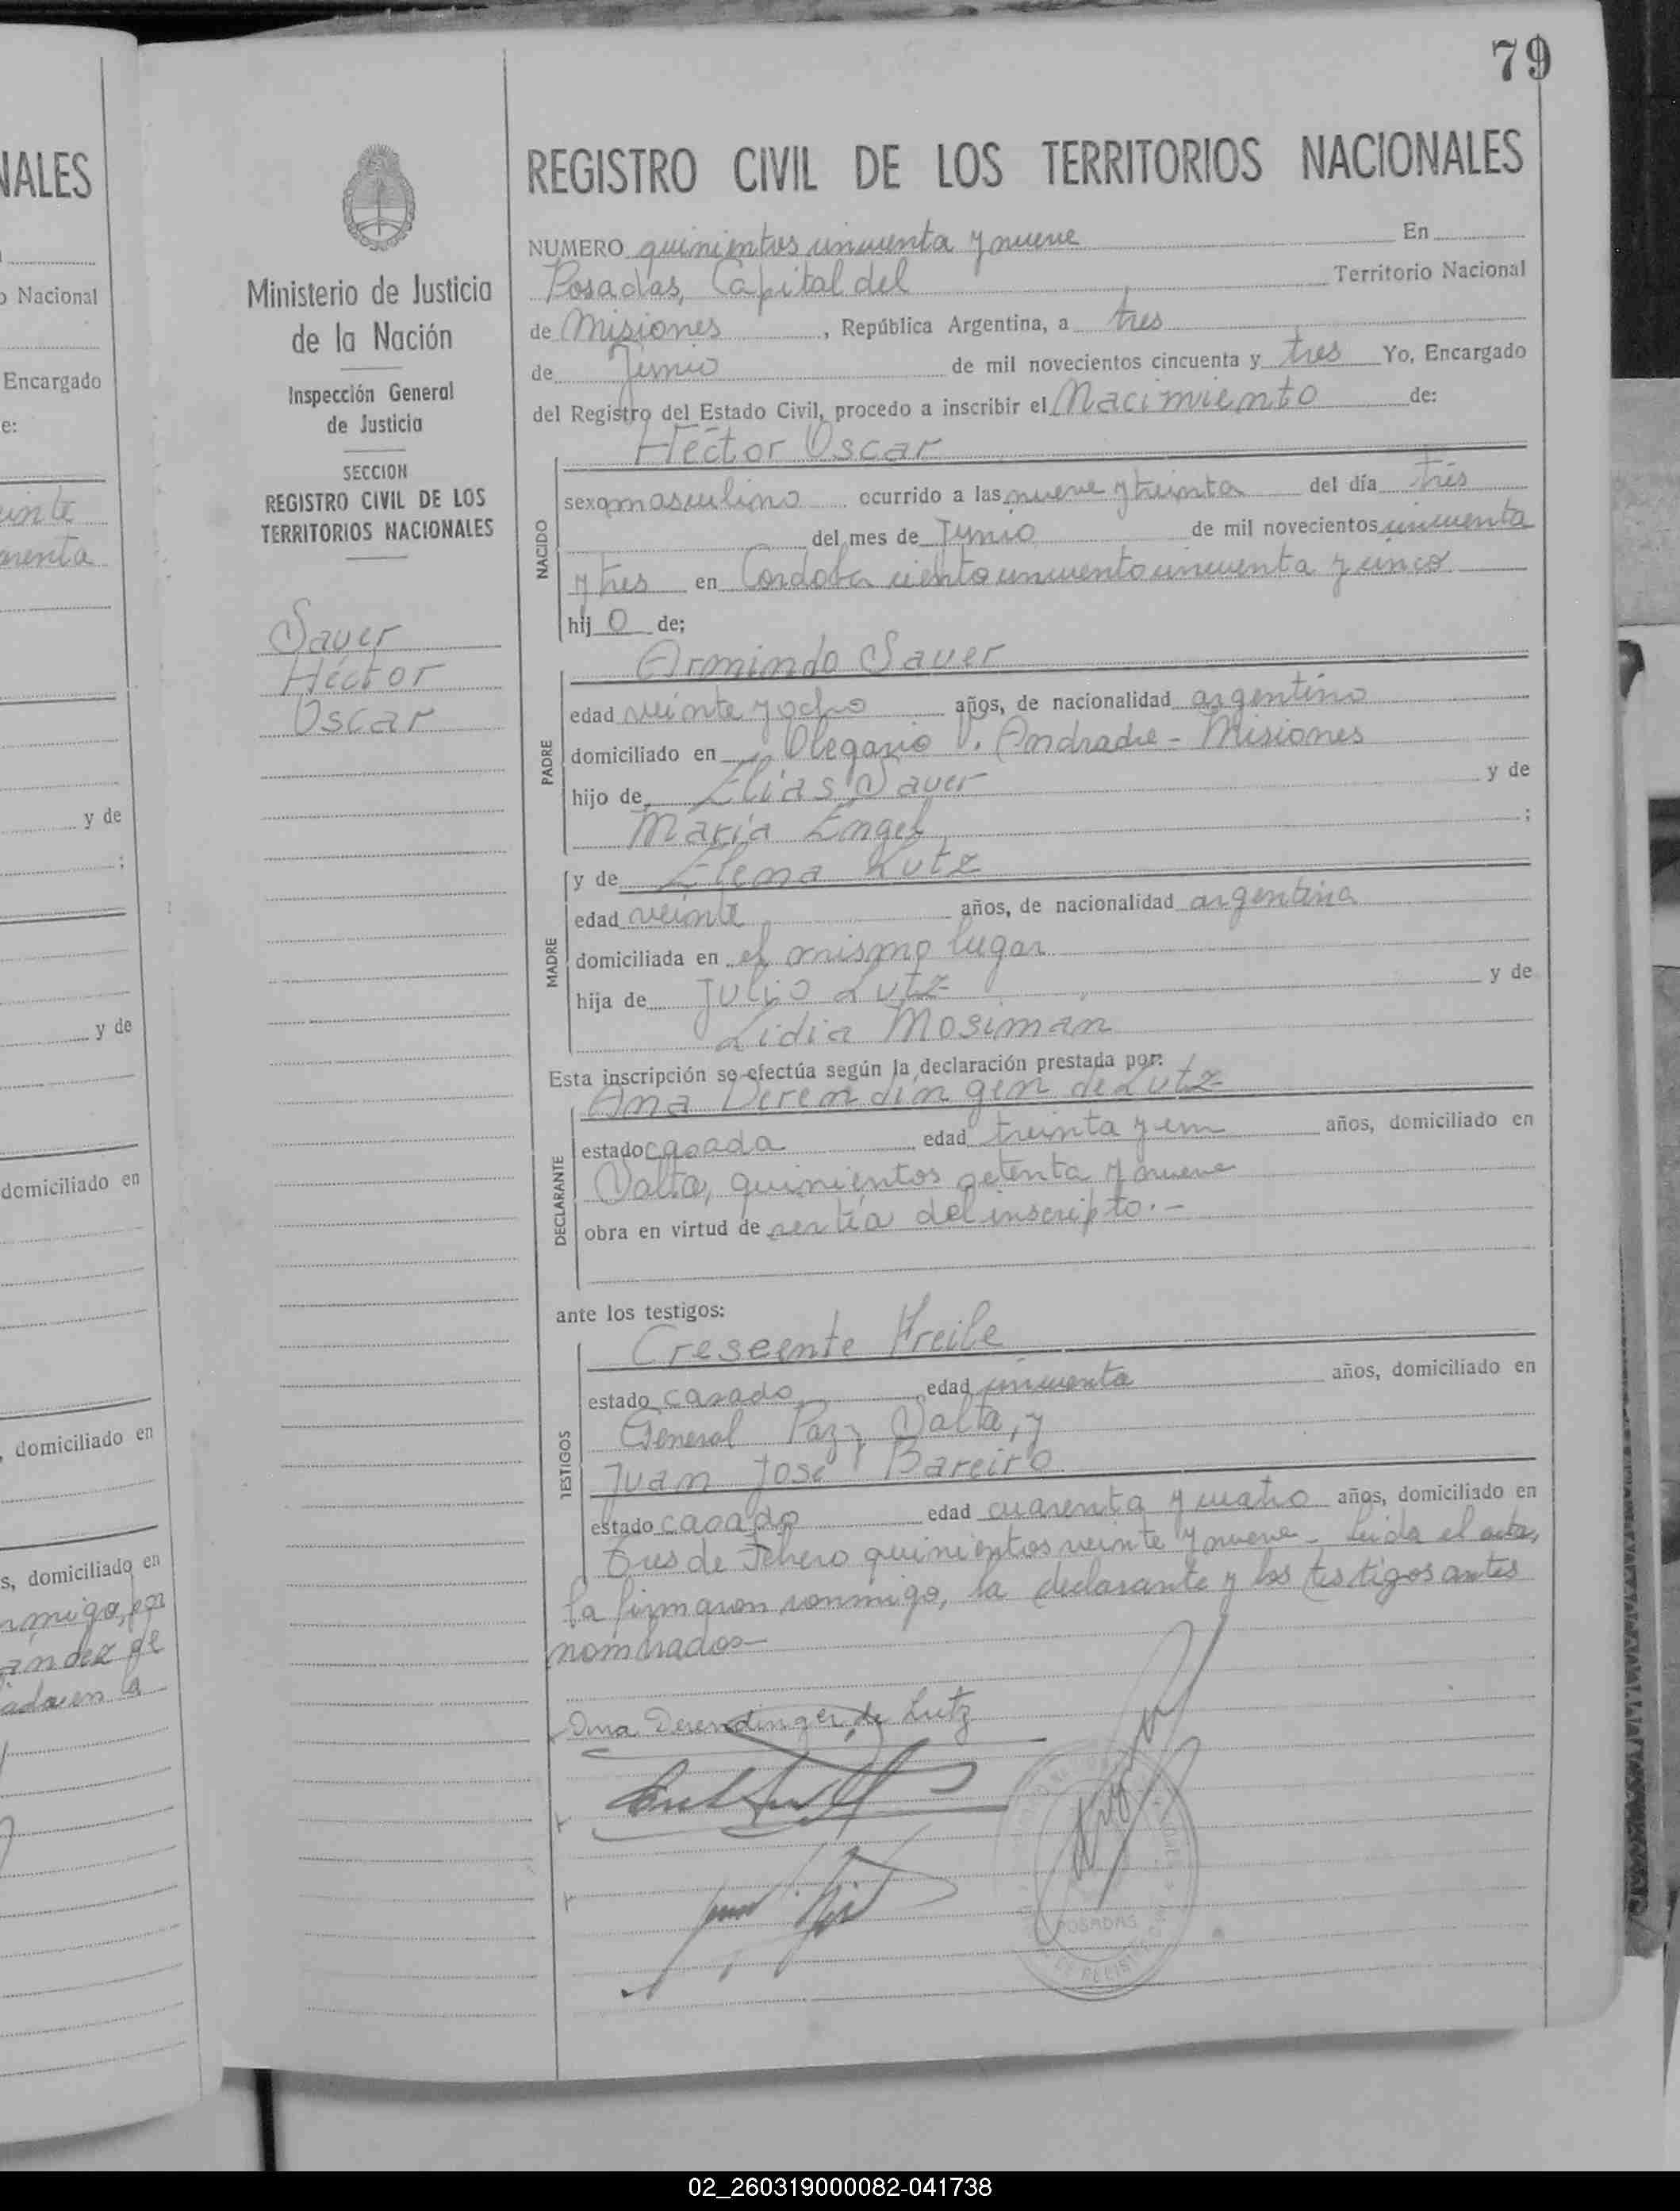 79
NALES
o Nacional
Encargado
e:
einte
y de
;
y de
domiciliado en
, domiciliado en
s, domiciliado en
Ministerio de Justicia
de la Nación
Inspección General
de Justicia
SECCION
REGISTRO CIVIL DE LOS
TERRITORIOS NACIONALES
Sauer
Héctor
Oscar
REGISTRO CIVIL DE LOS TERRITORIOS NACIONALES
NUMERO quinientos cincuenta y nueve En
Posadas, Capital del Territorio Nacional
de Misiones, República Argentina, a tres
de Junio de mil novecientos cincuenta y tres Yo, Encargado
del Registro del Estado Civil, procedo a inscribir el Nacimiento de:
Héctor Oscar
NACIDO
sexo masculino ocurrido a las nueve y treinta del día tres
del mes de Junio de mil novecientos cincuenta
y tres en Cordoba ciento cincuenta y cinco
hij o de;
PADRE
Armindo Sauer
edad veinte y ocho años, de nacionalidad argentino
domiciliado en Olegario V. Andrade - Misiones
hijo de Elias Sauer y de
Maria Engel ;
MADRE
y de Elena Lutz
edad veinte años, de nacionalidad argentina
domiciliada en el mismo lugar
hija de Julio Lutz y de
Lidia Mosiman
Esta inscripción se efectúa según la declaración prestada por:
DECLARANTE
Ana Derendingen de Lutz
estado casada edad treinta y un años, domiciliado en
Salta, quinientos setenta y nueve
obra en virtud de ser tía del inscripto.-
ante los testigos:
TESTIGOS
Cresente Freile
estado casado edad cincuenta años, domiciliado en
General Paz y Salta, y
Juan José Bareiro
estado casado edad cuarenta y cuatro años, domiciliado en
Tres de Febrero quinientos veinte y nueve - Leida el acta,
la firmaron conmigo, la declarante y los testigos antes
nombrados-
Ana Derendinger de Lutz
POSADAS
02_260319000082-041738